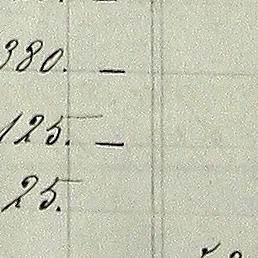 380. —
125. —
25.